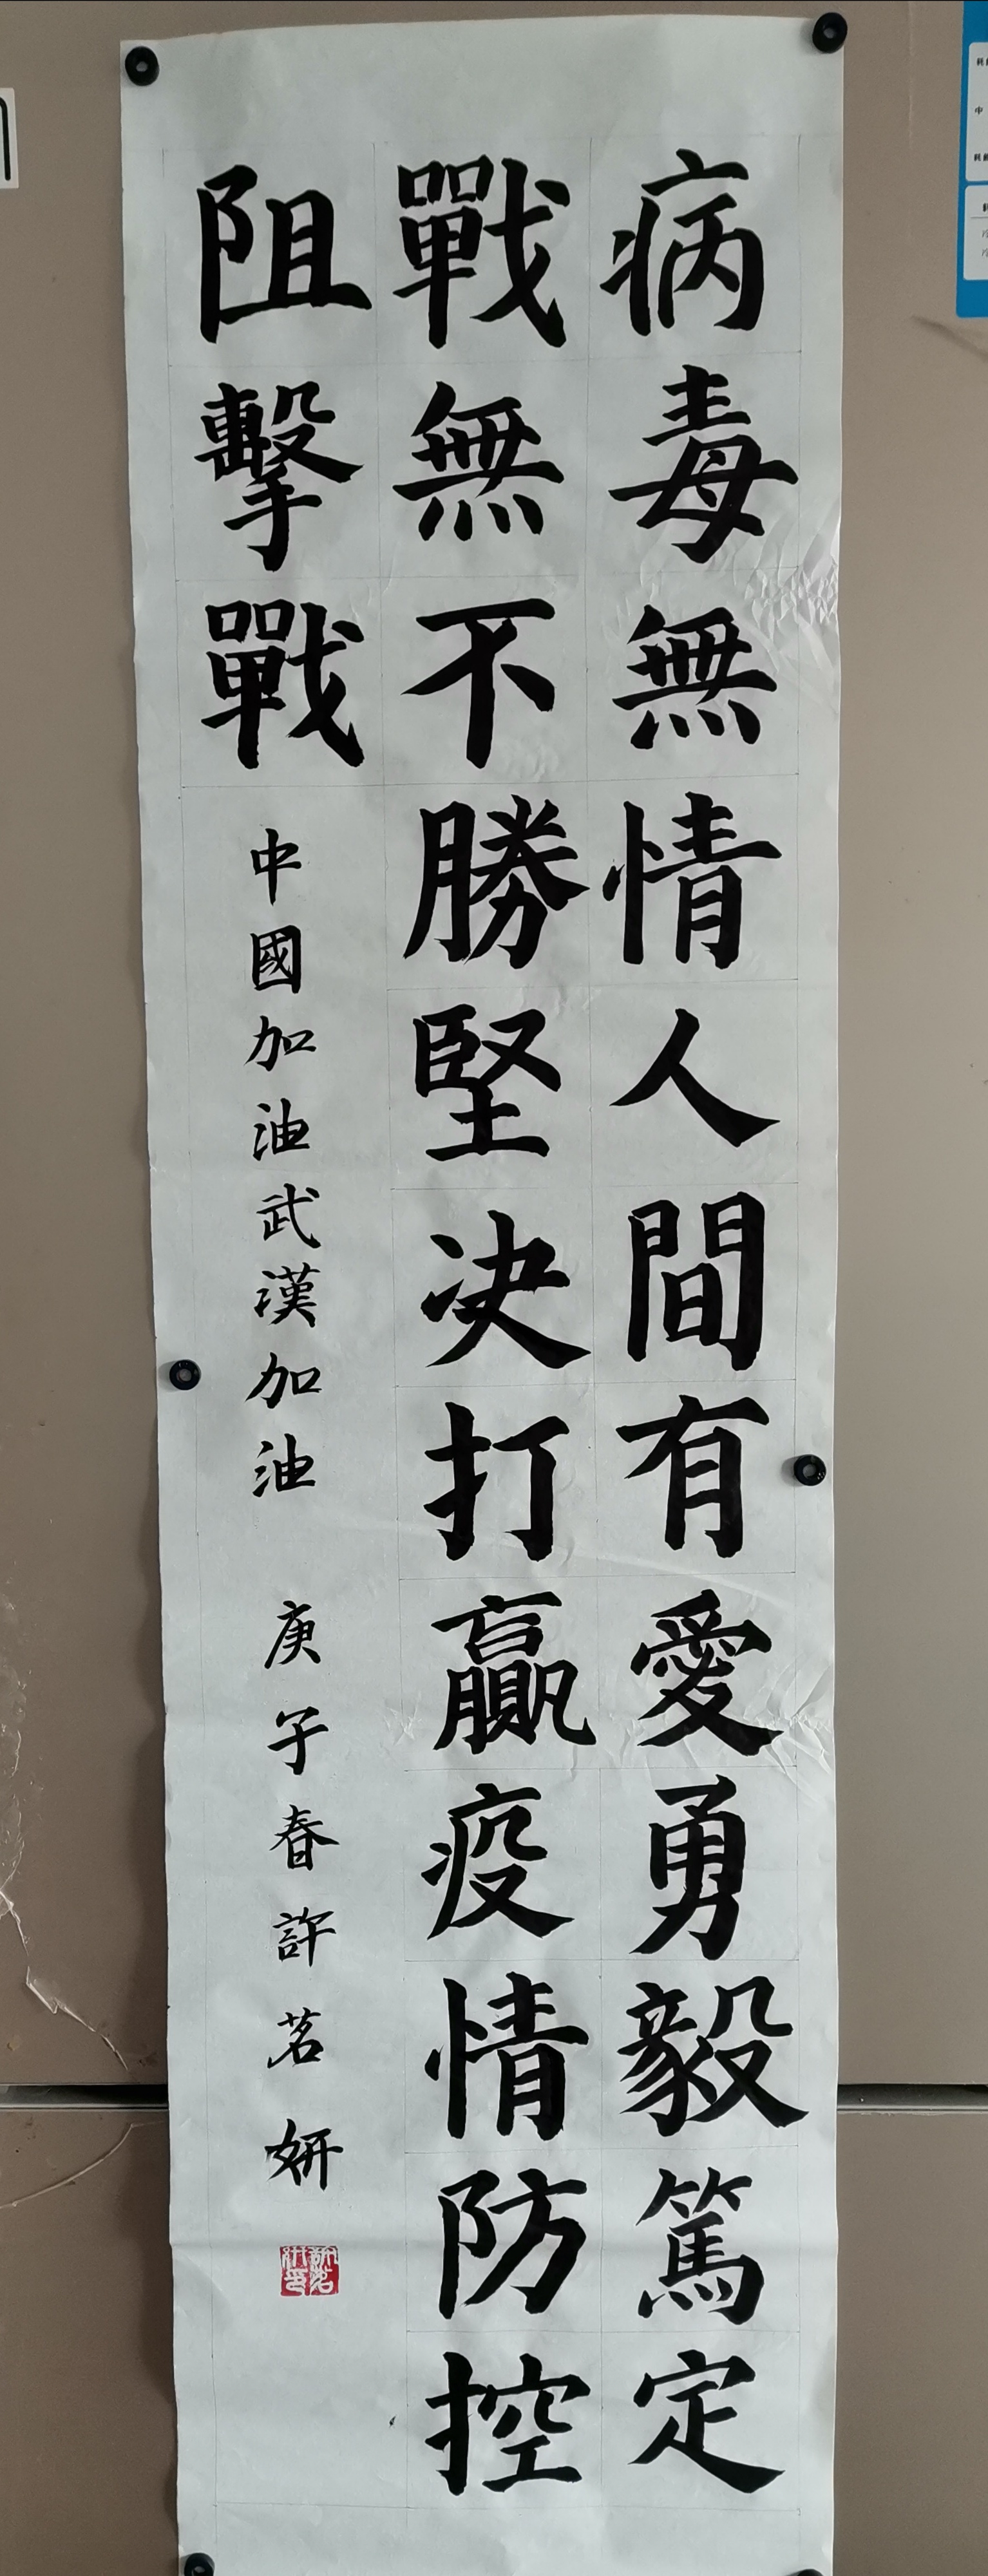 病毒無情人間有愛勇毅篤定
戰無不勝堅決打贏疫情防控
阻擊戰
中國加油武漢加油
庚子春許茗妍